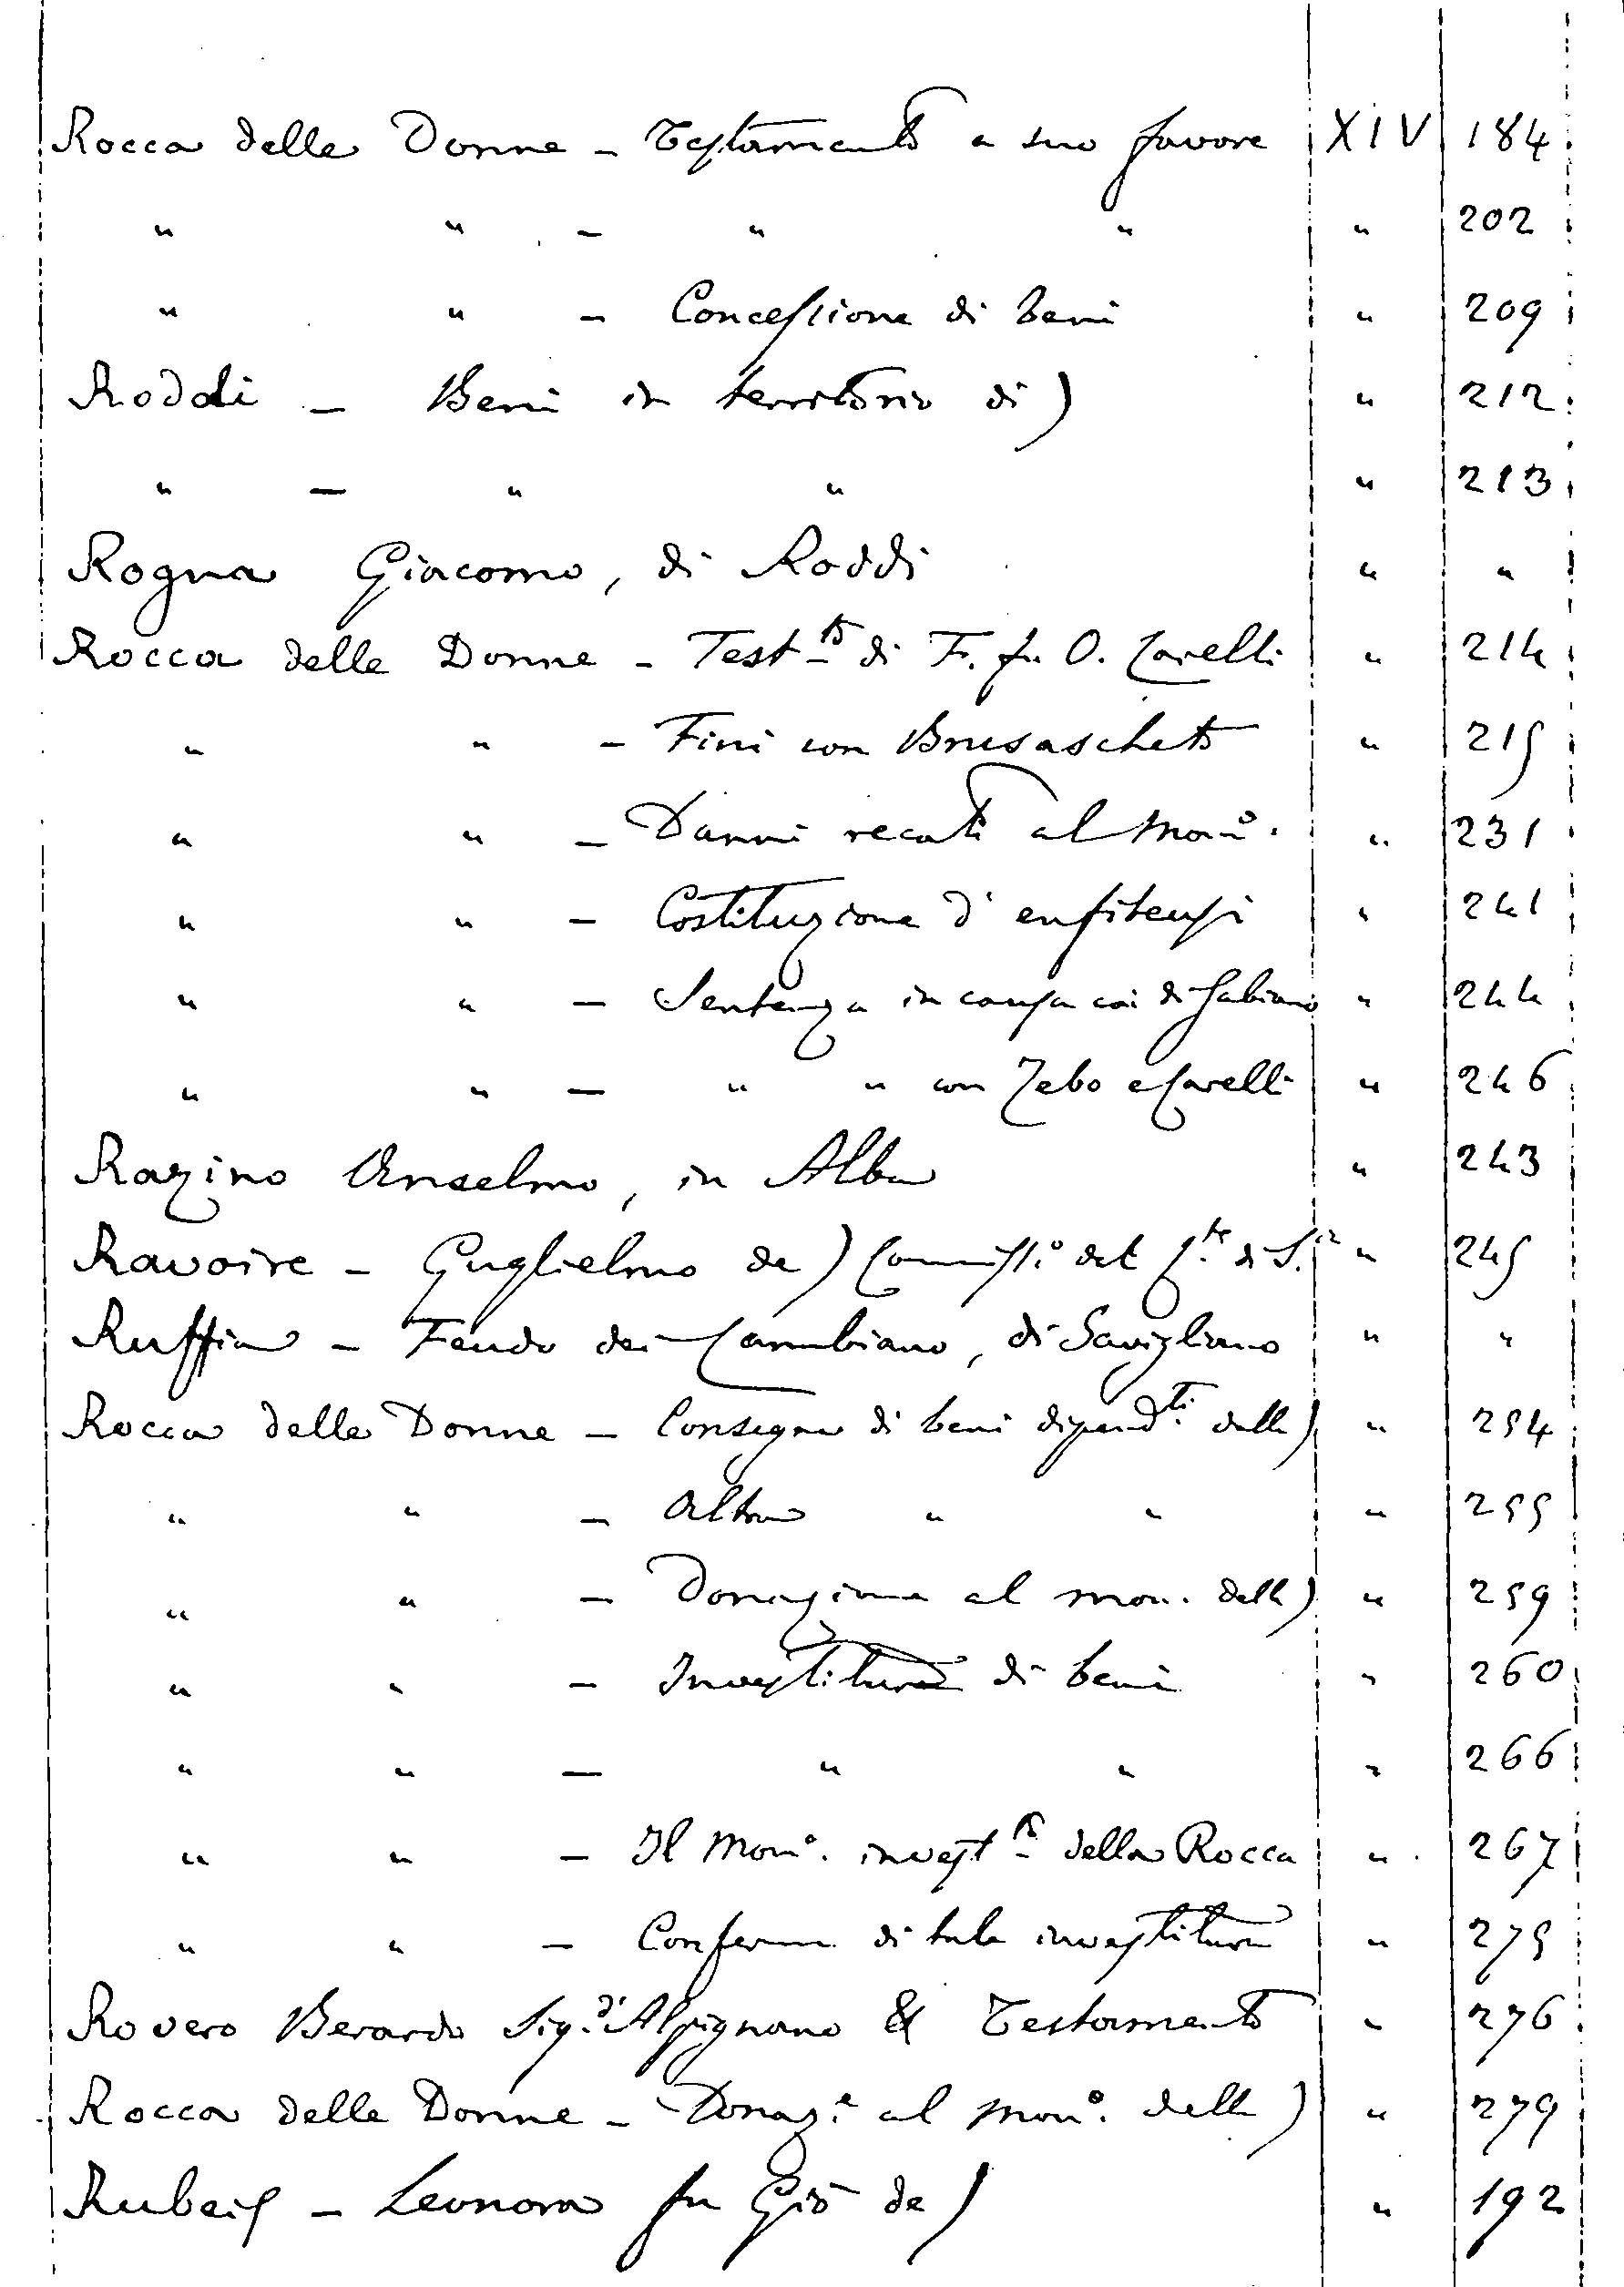 Rocca delle Donne - Testamento a suo favore XIV 184
" " - " " " 202
" " - Concessione di beni " 209
Roddi - Beni in territorio di) " 212
" - " " " 213
Rogna Giacomo, di Roddi " "
Rocca delle Donne - Test.to di F. fu O. Carelli " 214
" " - Fini con Brusascheto " 215
" " - Danni recati al Mon.o " 231
" " - Costituzione d'enfiteusi " 241
" " - Sentenza in causa coi di Gabiano " 244
" " - " " con Zebo e Carelli " 246
Razino Anselmo, in Alba " 243
Ravoire - Guglielmo de) Commiss.o del C.te di S.a " 245
Ruffia - Feudo dei Cambiano, di Savigliano " "
Rocca delle Donne - Consegna di beni dipend.ti dalla) " 254
" " - Altra " " " 255
" " - Donazione al mon. della) " 259
" " - Investitura di beni " 260
" " - " " " 266
" " - Il Mon.o invest.to della Rocca " 267
" " - Conferma di tale investitura " 275
Rovero Berardo Sig. d'Alpignano & Testamento " 276
Rocca delle Donne - Donaz.e al mon.o delle) " 279
Rubeis - Leonora fu Giò de) " 192